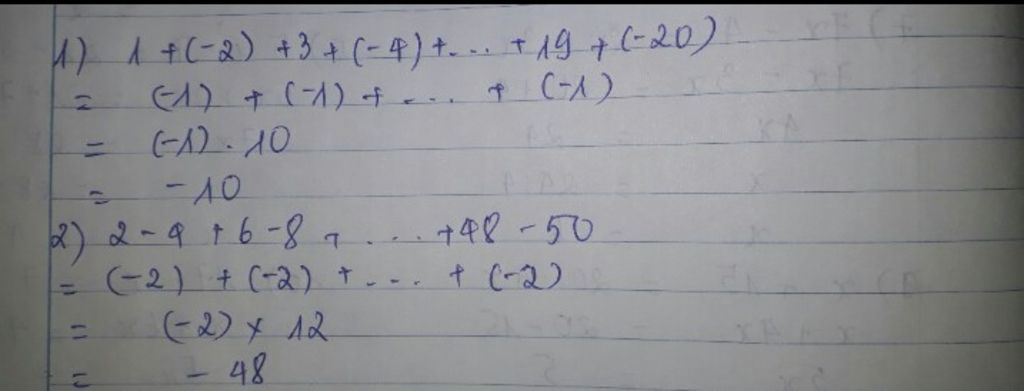 1) 1 + (-2) + 3 + (-4) + ... + 19 + (-20)
= (-1) + (-1) + ... + (-1)
= (-1) . 10
= -10
2) 2 - 4 + 6 - 8 + ... + 48 - 50
= (-2) + (-2) + ... + (-2)
= (-2) x 12
= - 48